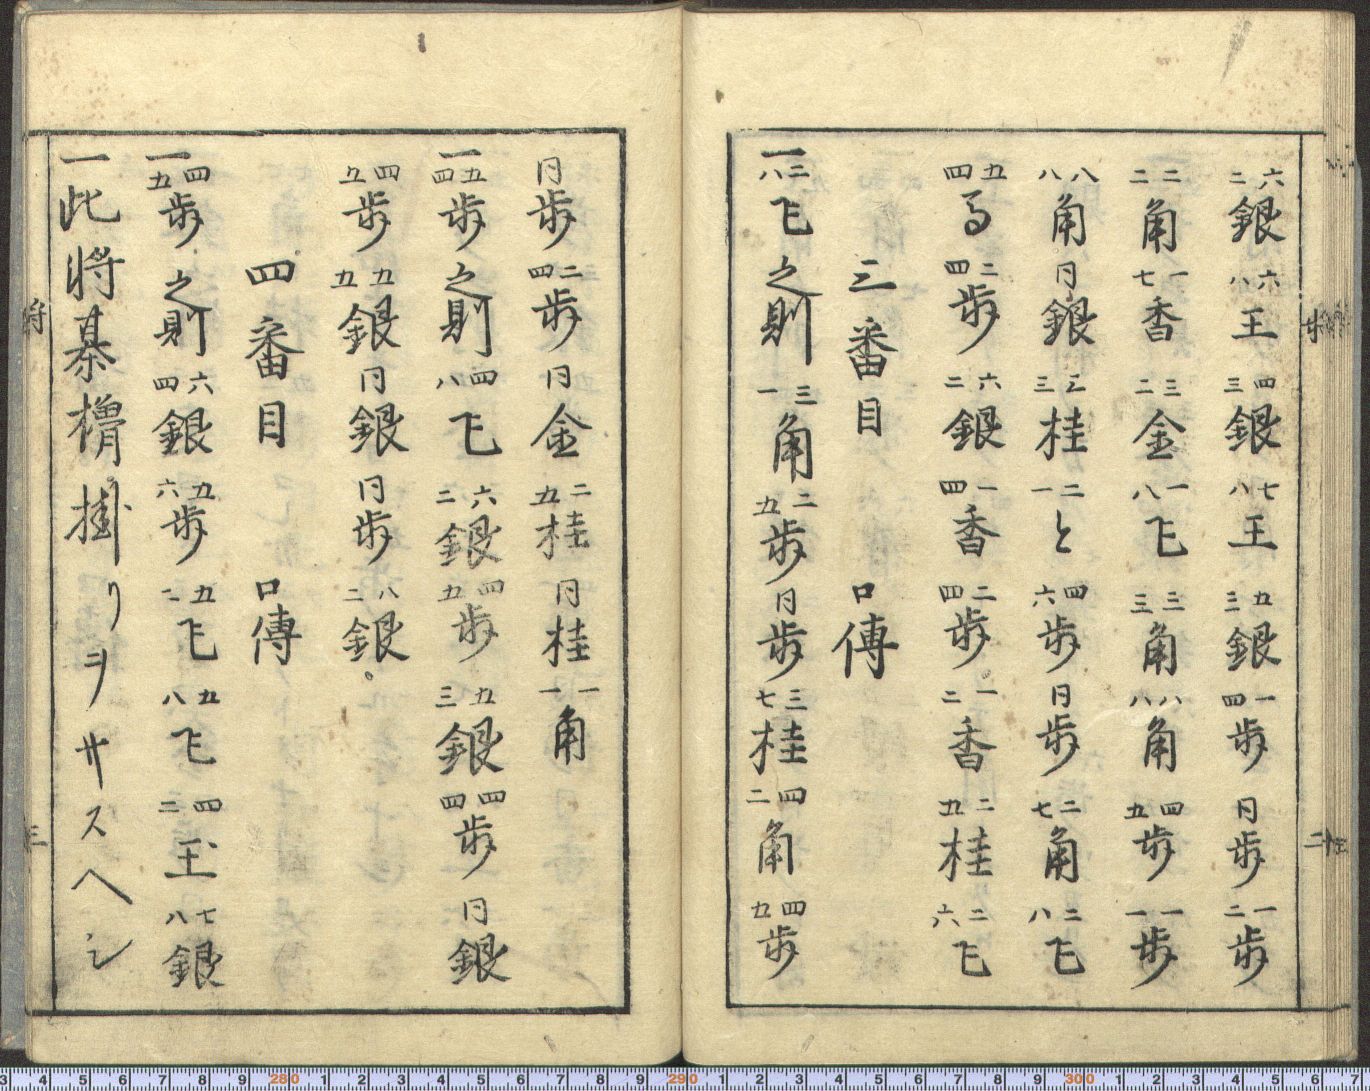 六二銀 六八王 四三銀 七八王 五三銀 一四歩 同歩 一二歩
二二角 一七香 三二金 一八飛 二三角 八八角 四五歩 一一歩
八八角 同銀 三三桂 二一と 四六歩 同歩 二七角 二八飛
五四馬 二四歩 六二銀 一四香 二四歩 一二香 二五桂 二六飛
三番目 口傳
一 二八飛之則 三一角 二五歩 同歩 三七桂 四二角 四五歩
同歩 二四歩 同金 二五桂 同桂 一一角
一 五四歩之則 四八飛 六二銀 四五歩 五三銀 四四歩 同銀
四五歩 五五銀 同銀 同歩 八二銀
四番目 口傳
一 四五歩之則 六四銀 五六歩 五二飛 五八飛 四二玉 七八銀
一 此將棊櫓掛リヲサスヘシ